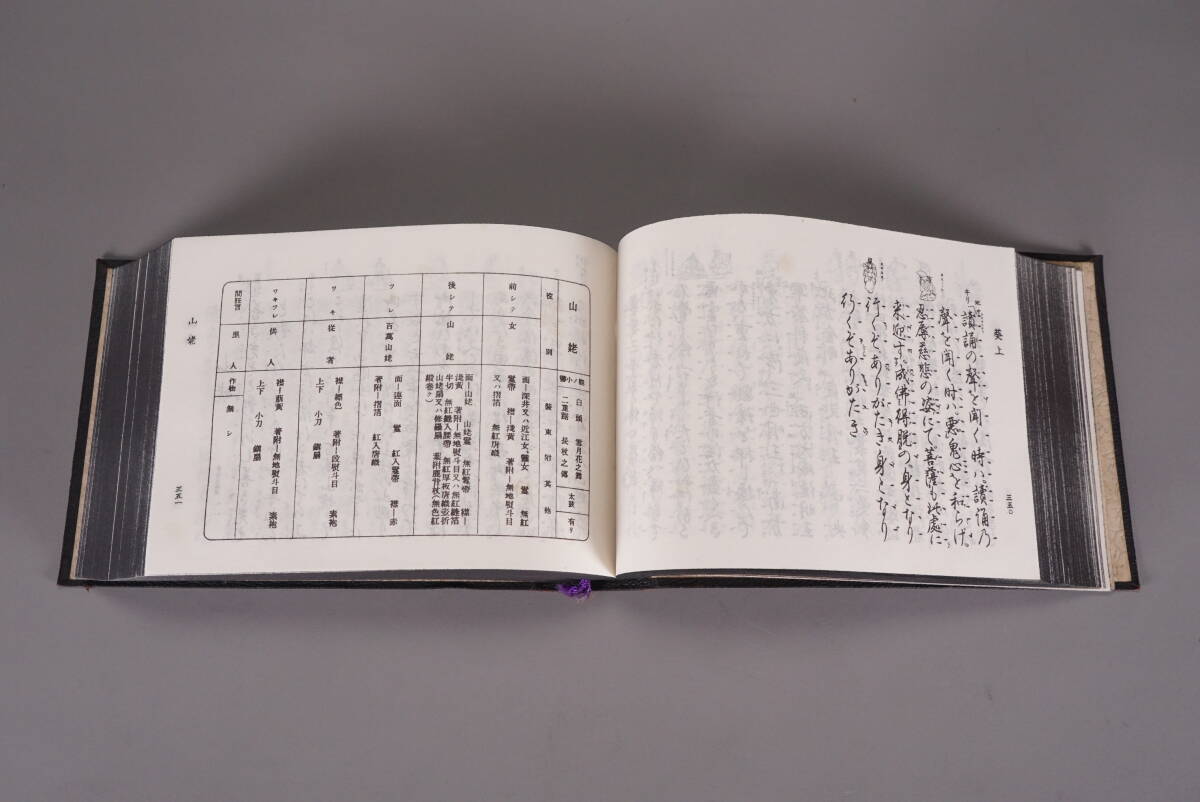 葵上
三五〇
キリ
讀誦の聲を聞く時ハ讀誦乃
聲を聞く時ハ悪鬼心を和らげ
忍辱慈悲の姿にて菩薩も此處に
来迎す成佛得脱の身となり
行くぞありがたき身となり
行くぞありがたき
山姥
白頭 雪月花之舞
二重踞 長杖之傳
太鼓 有リ
役別
装束冠其他
前シテ 女
面ー深井又ハ近江女、靈女 鬘 無紅
鬘帶 襟ー淺黄 著附ー無地熨斗目
又ハ摺箔 無紅唐織
後シテ 山姥
面ー山姥 山姥鬘 無紅鬘帶 襟ー
淺黄 著附ー無地熨斗目又ハ無紅縫箔
半切 無紅縫入腰帶 無紅厚板唐織壺折
山姥扇又ハ修羅扇
緞巻ク)
ツレ 百萬山姥
面ー連面 鬘 紅入鬘帶 襟ー赤
著附ー摺箔 紅入唐織
ワキ 從者
襟ー縹色 著附ー段熨斗目 素袍
上下 小刀 鎭扇
ワキツレ 供人
襟ー萠黄 著附ー無地熨斗目 素袍
上下 小刀 鎭扇
間狂言 里人
作物 無シ
山姥
三五一